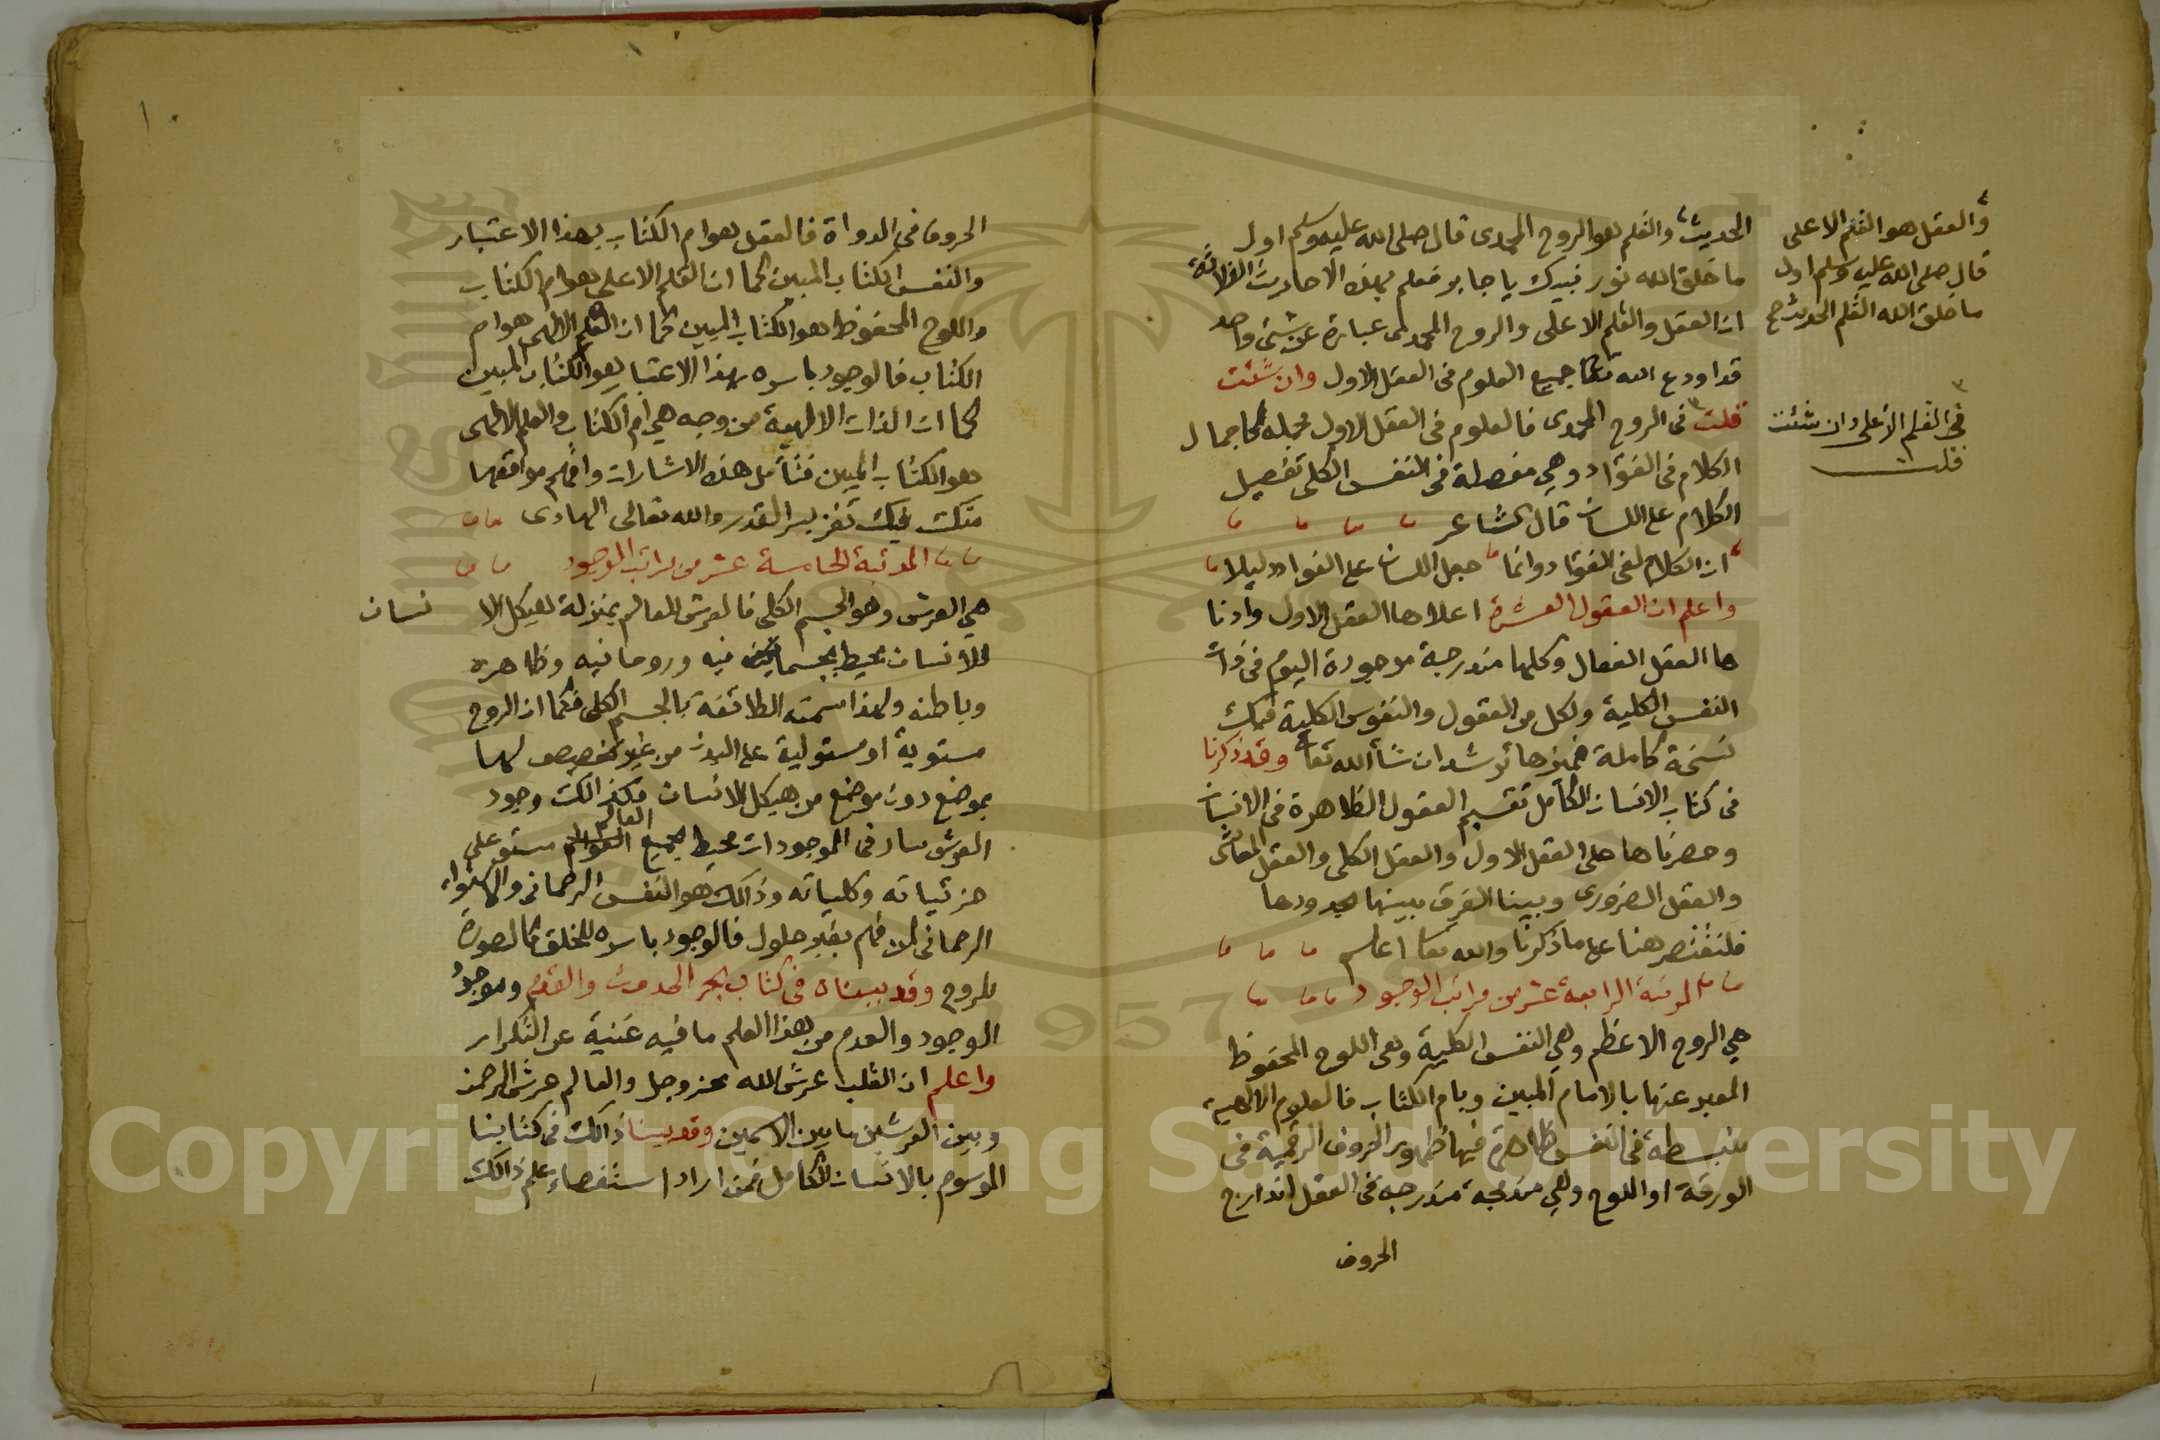 الحديث والقلم هو الروح المحمدى قال صلى الله عليه وسلم اول
ما خلق الله نور نبيك يا جابر فعلم بهذه الاحاديث الثلاثة
ان العقل والقلم الاعلى والروح المحمدى عبارة عن شئ واحد
قد اودع الله تعا جميع العلوم فى العقل الاول وان شئت
قلت فى الروح المحمدى فالعلوم فى العقل الاول مجمله كاجمال
الكلام فى الفؤاد وهي مفصلة فى النفس الكلى تفصيل
الكلام على اللسان قال الشاعر
ان الكلام لفى الفؤاد وانما جعل اللسان على الفواد دليلا
واعلم ان العقول العشرة اعلاها العقل الاول وادنا
ها العقل الفعال وكلها مندرجة موجودة اليوم فى ذات
النفس الكلية ولكل من العقول والنفوس الكلية فيك
نسخة كاملة فميزها ترشد ان شأ الله تعا وقد ذكرنا
فى كتاب الانسان الكامل تقسيم العقول الظاهرة فى الانسان
وحصرناها على العقل الاول والعقل الكلى والعقل المعاشى
والعقل الضرورى وبينا الفرق بينها بحدودها
فلنقتصر هنا على ما ذكرنا والله تعا اعلم
المرتبة الرابعة عشر من مراتب الوجود
هي الروح الاعظم وهي النفس الكلية وهى اللوح المحفوظ
المعبر عنها بالامام المبين وبام الكتاب فالعلوم الالهية
منبسطة فى النفس ظاهرة فيها ظهور الحروف الرقمية فى
الورقة او اللوح وهي مندمجة مندرجة فى العقل اندارج
الحروف
والعقل هو القلم الاعلى
قال صلى الله عليه وسلم اول
ما خلق الله القلم الحديث صح
فى القلم الاعلى وان شئت
قلت
الحروف فى الدواة فالعقل هو ام الكتاب بهذا الاعتبار
والنفس الكتاب المبين كما ان القلم الاعلى هو ام الكتاب
واللوح المحفوظ هو الكتاب المبين كما ان العلم الالهى هو ام
الكتاب فالوجود باسره بهذا الاعتبار هو الكتاب المبين
كما ان الذات الالهية من وجه هي ام الكتاب والعلم الالهى
هو الكتاب المبين فتأمل هذه الاشارات وافهم مواقعها
منك فيك تفز بسر القدر والله تعالى الهادى
المرتبة الخامسة عشر من مراتب الوجود
هي العرش وهو الجسم الكلى فالعرش للعالم بمنزلة هيكل الا نسان
للانسان محيط بجسمانيه وروحانيه وظاهره
وباطنه ولهذا سمته الطائفة بالجسم الكلى فكما ان الروح
مستوية او مستولية على البدن من غير تخصيص لها
بموضع دون موضع من هيكل الانسان فكذالك وجود
العرش سار فى الموجودات محيط بجميع العالم مستو على
جزئياته وكلياته وذالك هو النفس الرحمانى والاستواء
الرحمانى لمن فهم بغير حلول فالوجود باسره للخلق كالصورة
للروح وقد بيناه فى كتاب بحر الحدوث والقدم وموجد
الوجود والعدم من هذا العلم ما فيه غنية عن التكرار
واعلم ان القلب عرش الله عز وجل والعالم عرش الرحمن
وبين العرشين ما بين الاسمين وقد بينا ذالك فى كتابنا
الموسوم بالانسان الكامل فمن اراد استقصاء علم ذالك
Copyright © King Saud University
1957